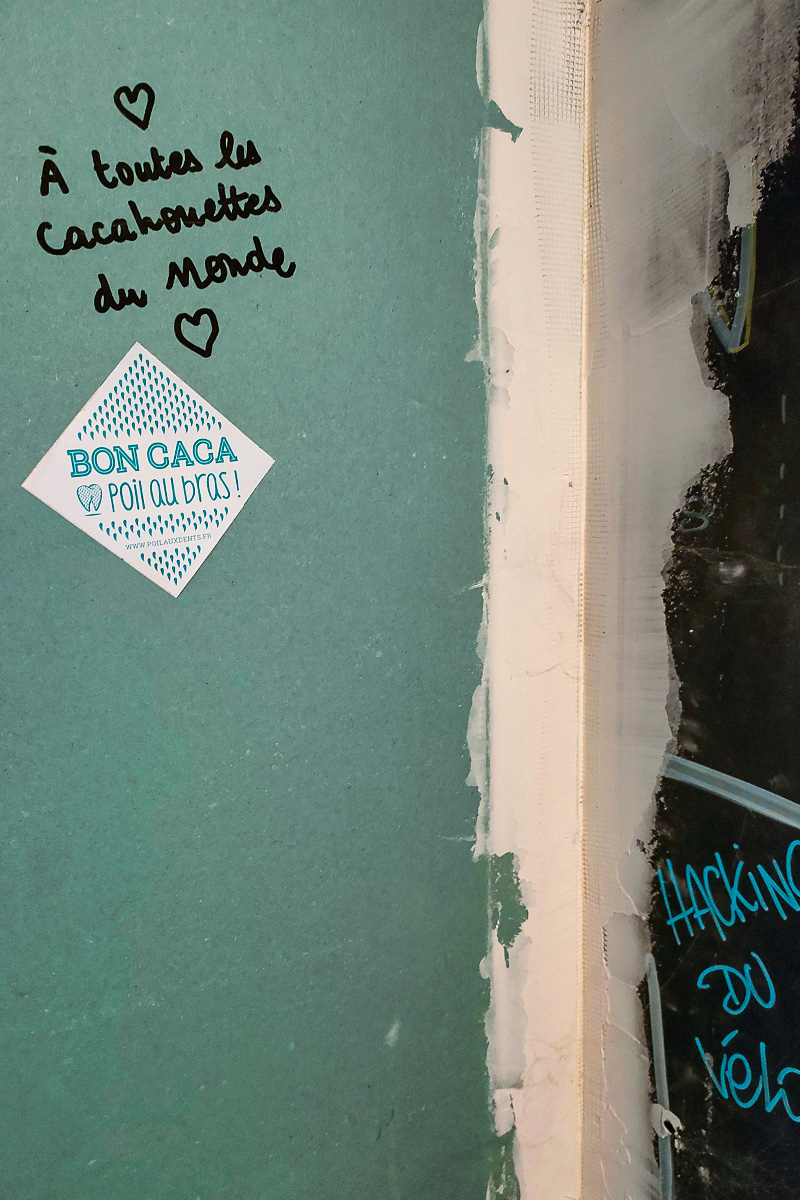 À toutes les
Cacahouettes
du Monde
BON CACA
Poil au bras !
WWW.POILAUXDENTS.FR
HACKING
DU
Vélo